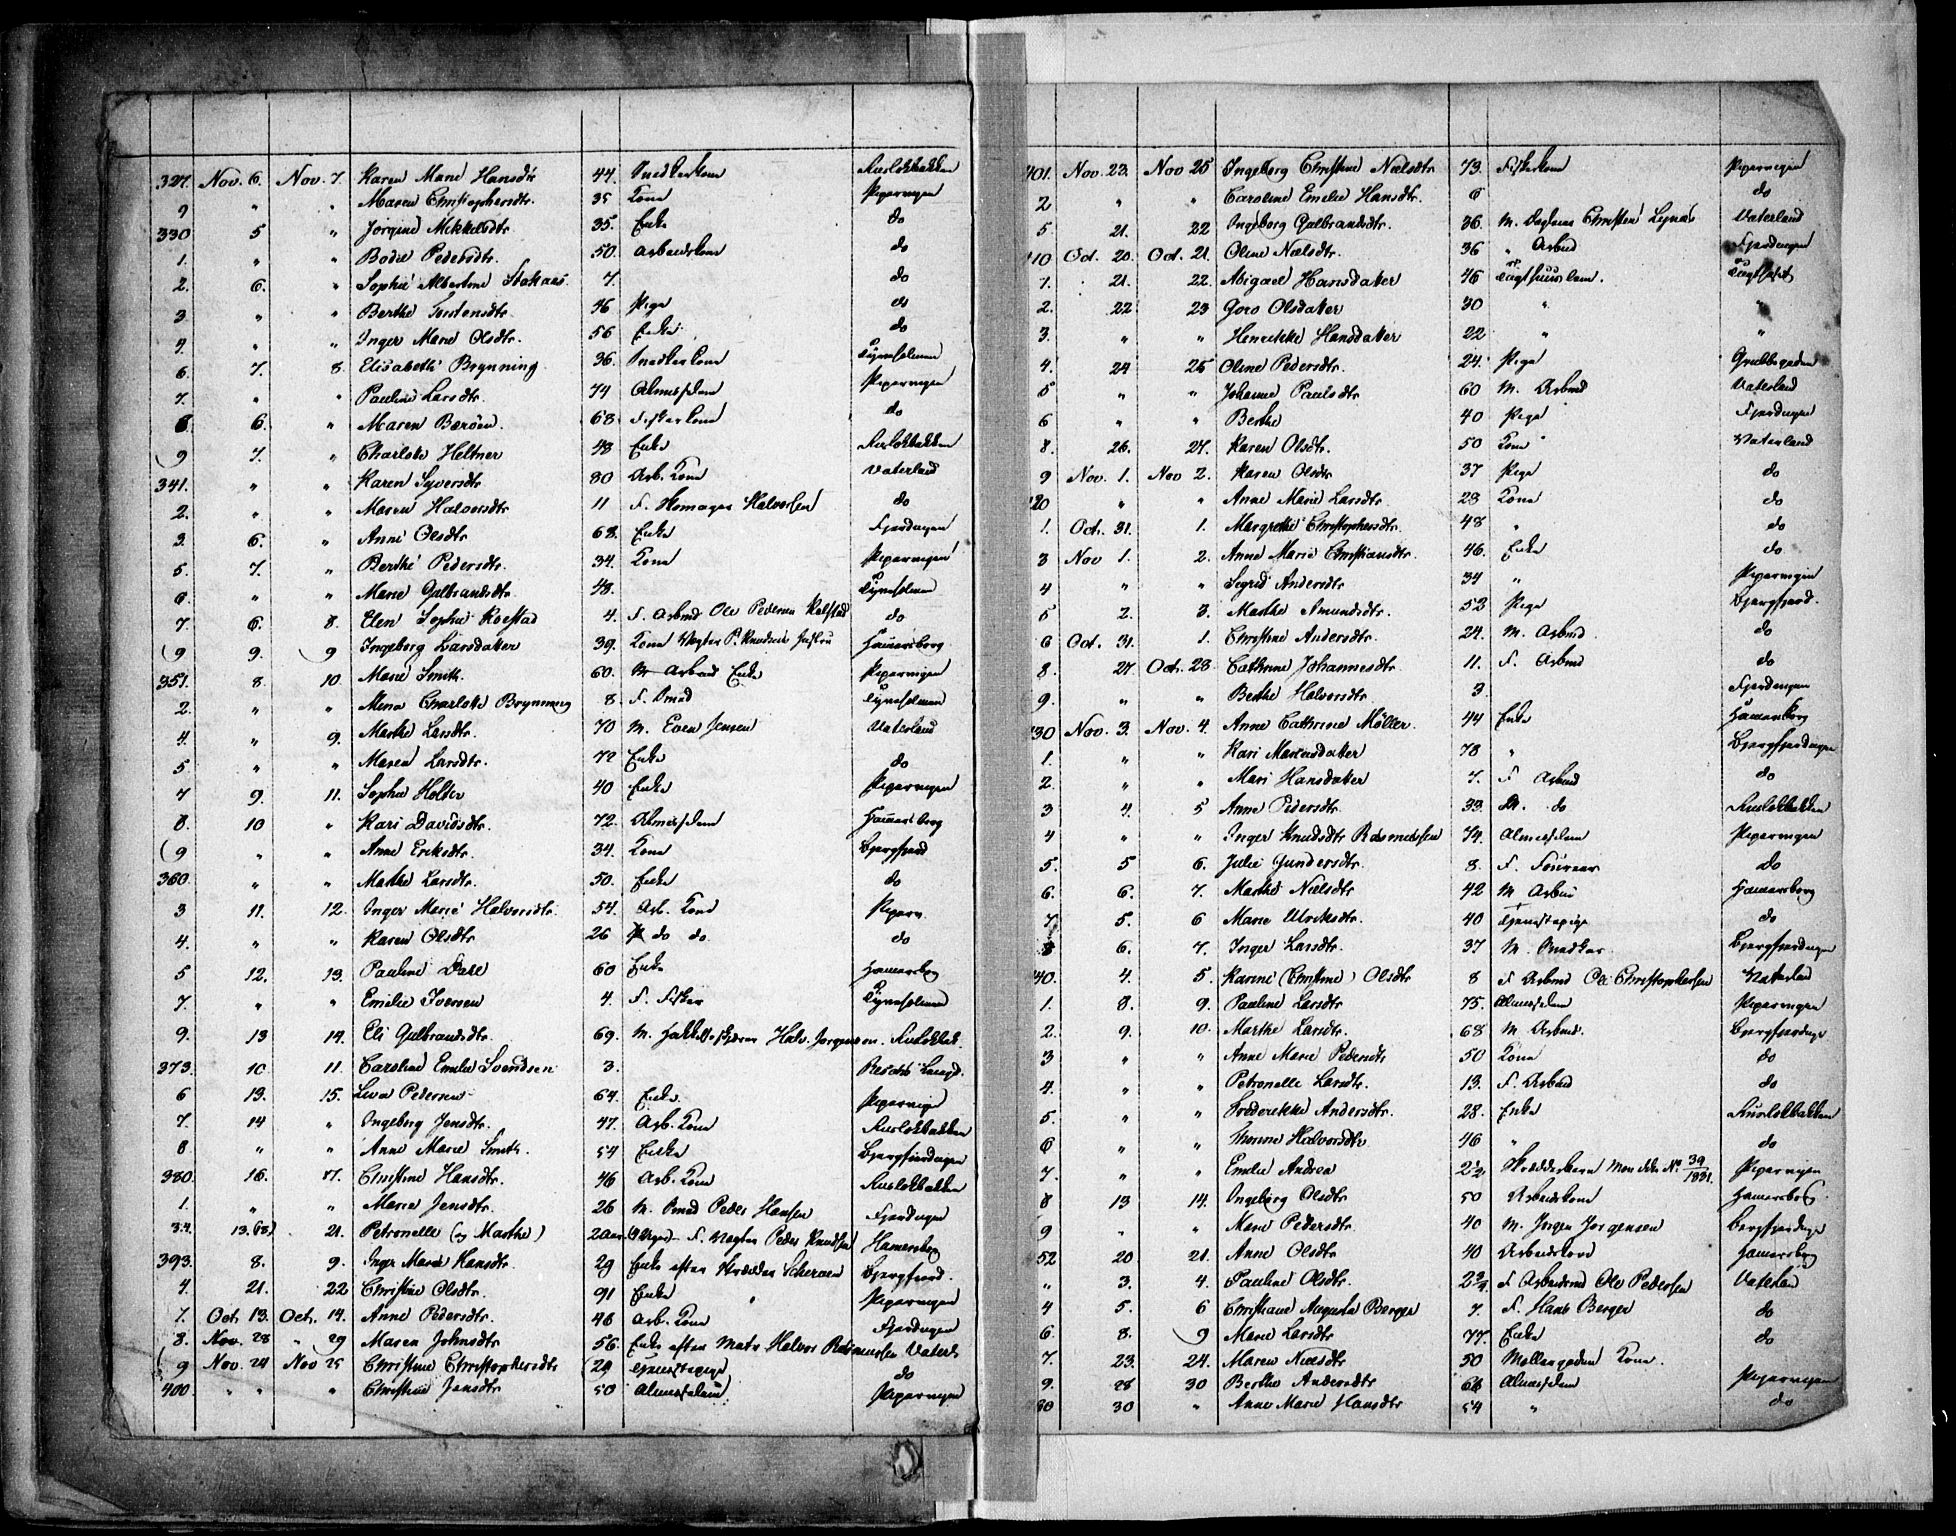 327. Nov. 6. Nov. 7. Karen Marie Hansdtr 44. Snedkerkone Ruslokbakken
9 " " Maren Christophersdtr. 35 Kone Pipervigen
330 5 " Jorgine Mikkelsdtr 35. Enke do
1. " " Bodil Pedersdtr. 50. Arbeidskone do
2. 6. " Sophie Albertine 7. do
3 " " Berthe Torstensdtr 46 Pige do
4. " " Inger Marie Olsdtr. 56 Enke do
6. 7. 8. Elisabeth Brynning 36. Snedkerkone Tyveholmen
7. " " Pauline Larsdtr. 74 Almislem Pipervigen
8 6. " Maren Bærøen. 68. Fiskerkone do
9 7. " Charlotte Heltner 48 Enke Ruslokbakken
341. " " Karen Syversdtr 30 Arb. Kone Vaterland
2. " " Maren Halvorsdtr 11 F. Halvorsen do
3. 6. " Anne Olsdtr 68. Enke Fjerdingen
5. 7. " Berthe Pedersdtr. 34. Kone Pipervigen
6. " " Marie Gulbrandsdtr. 48. Tyveholmen
7. 6. 8. Elen Sophie Kolstad 4. F. Arbmd Ole Pedersen Kolstad do
9 9. 9 Ingeborg Larsdatter 39. Kone Vægter P. Knudsen Hamersborg
351. 8. 10. Marie Smith. 60. Arbmd Enke Pipervigen
2. " " Mina Charlotte Brynning 8. F. Smed Tyveholmen
4. " 9. Marthe Larsdtr. 70 M. Even Jensen Vaterland
5 " " Maren Larsdtr. 72 Enke do
7 9. 11. Sophie Holter 40 Enke Pipervigen
8. 10 " Kari Davidsdtr. 72. Almislem Hamersborg
9 " " Anne Eriksdtr. 34. Kone Bjergfjerd
360. " " Marthe Larsdtr. 50. Enke do
3 11. 12. Inger Marie Halvorsdtr. 54. Arb. Kone Piperv.
4. " " Karen Olsdtr 26 do do. do
5 12. 13. Pauline Dahl 60 Enke Hamersborg
7. " " Emilie Iversen 4. F. Fisker Tyveholmen
9. 13 14. Eli Gulbrandsdtr. 69. M. Halv. Jorgensen. Ruslokbak.
373. 10 11. Caroline Emilie Svendsen 3.
6 13. 15. Lena Pedersen 64. Enke. Pipervigen
7. 14 " Ingeborg Jensdtr. 47. Arb. Kone Ruslokbakken
8 " " Anne Marie Smith. 54 Enke Bjergfjerdingen
380. 16. 17. Christine Hansdtr. 46 Arb. Kone Ruslokbakken
1. " " Marie Jensdtr. 26 M. Smed Peder Hansen Fjerdingen
3.4. 13. 21. Petronelle (og Marthe) F. Vægter Peder Knudsen Hamersborg
393. 8. 9. Inger Marie Hansdtr. 29 Enke efter Skrædder Bjergfjerd.
4. 21. 22 Christine Olsdtr. 91 Enke Pipervigen
7. Oct 13. Oct. 14. Anne Pedersdtr. 48 Arb. Kone Fjerdingen
8. Nov. 28 " 29 Maren Johnsdtr 56. Enke efter Matr Halvor Rasmussen Vaterl.
9 Nov. 24 Nov 25 Christine Christophersdtr 29 Tjenestepige do
400. " " " Christine Jensdtr 50 Almislem Pipervigen
401. Nov. 23. Nov 25 Ingeborg Christine Nielsdtr 73. Fiskerkone Pipervigen
2 " " Caroline Emilie Hansdtr. 6 do
5 21. 22 Ingeborg Gulbrandsdtr. 36. M. Christen Vaterland
410 Oct. 20. Oct. 21. Oline Nielsdtr. 36 " Arbmd Fjerdingen
1. 21. 22. Abigael Hansdatter 46 Tugthuuslem. Tugthuset
2. 22 23 Goro Olsdatter 30 " "
3. " " Henrikke Hansdatter 22 " "
4. 24 25 Oline Pedersdtr. 24. Pige Grubbegaden
5 " " Johanne Paulsdtr 60 M. Arbmd Vaterland
6 " " Berthe 40 Pige Fjerdingen
8. 26. 27. Karen Olsdtr. 50 Kone Vaterland
9 Nov. 1. Nov 2. Karen Olsdtr 37 Pige do
420 " " Anne Marie Larsdtr. 28 Kone do
1. Oct. 31. 1. Margrethe Christophersdtr. 48 " do
3 Nov 1. 2. Anne Marie Christiansdtr. 46. Enke do
4 " " Sigrid Andersdtr 34 " Pipervigen
5 2. 3. Marthe Amundsdtr. 52 Pige Bjergfjerd.
6 Oct. 31. 1. Christine Andersdtr. 24. M. Arbmd do
8. 27 Oct. 28 Cathrine Johannesdtr 11. F. Arbmd do
9. " " Berthe Halvorsdtr 3 Fjerdingen
430 Nov. 3. Nov. 4. Anne Cathrine Möller. 44 Enke Hamersborg
1. " " Kari 78 " Bjergfjerdingen
2. " " Mari Hansdatter 7. F Arbmd do
3 4. 5 Anne Pedersdtr. 33. do Ruslokbakken
4 " " Inger Knudsdtr Rasmussen 74. Almislem Pipervigen
5. 5 6. Julie Gundersdtr. 8. F. do
6. 6. 7. Marthe Nielsdtr 42 M Arbm Hamersborg
7 5. 6 Marie Ulriksdtr. 40 Tjenestepige do
8 6. 7. Inger Larsdtr. 37 M. Snedker Bjergfjerdingen
440. 4. 5. Karine (Christine) Olsdtr 8 F Arbmd Ole Christophersen Vaterlad
1. 8. 9. Pauline Larsdtr 75. Almislem Pipervigen
2. 9. 10. Marthe Larsdtr. 68 M Arbmd. Bjergfjerdinge
3 " " Anne Marie Pedersdtr 50 Kone do
4. " " Petronelle Larsdtr. 13. F. Arbmd do
5. " " Frederikke Andersdtr. 28. Enke Ruslokbakken
6 " " Halvorsdtr 46 " do
7 " " Emilie Andrea 2½ No 39/1831. Pipervigen
8 13 14. Ingeborg Olsdtr 50 Arbeidskone Hamersborg.
9 " " Marie Pedersdtr. 40 M. Jørgen Jorgensen Bergfjerdinge
52 20 21. Anne Olsdtr 40 Arbeidskone Hamersborg
" 3. 4. Pauline Olsdtr. 2¾ F Arbeidsmd Ole Pedersen Vaterlan
4 5. 6 Christiane Augusta Berger 7. F. Hans Berger do
6. 8. 9 Marie Larsdtr 77. Enke do
7. 23. 24. Maren Nielsdtr 50 Møllergaden Kone.
9. 28 30 Berthe Andersdtr 66 Almislem Pipervigen
60 30 " Anne Marie Hansdtr 54 " do